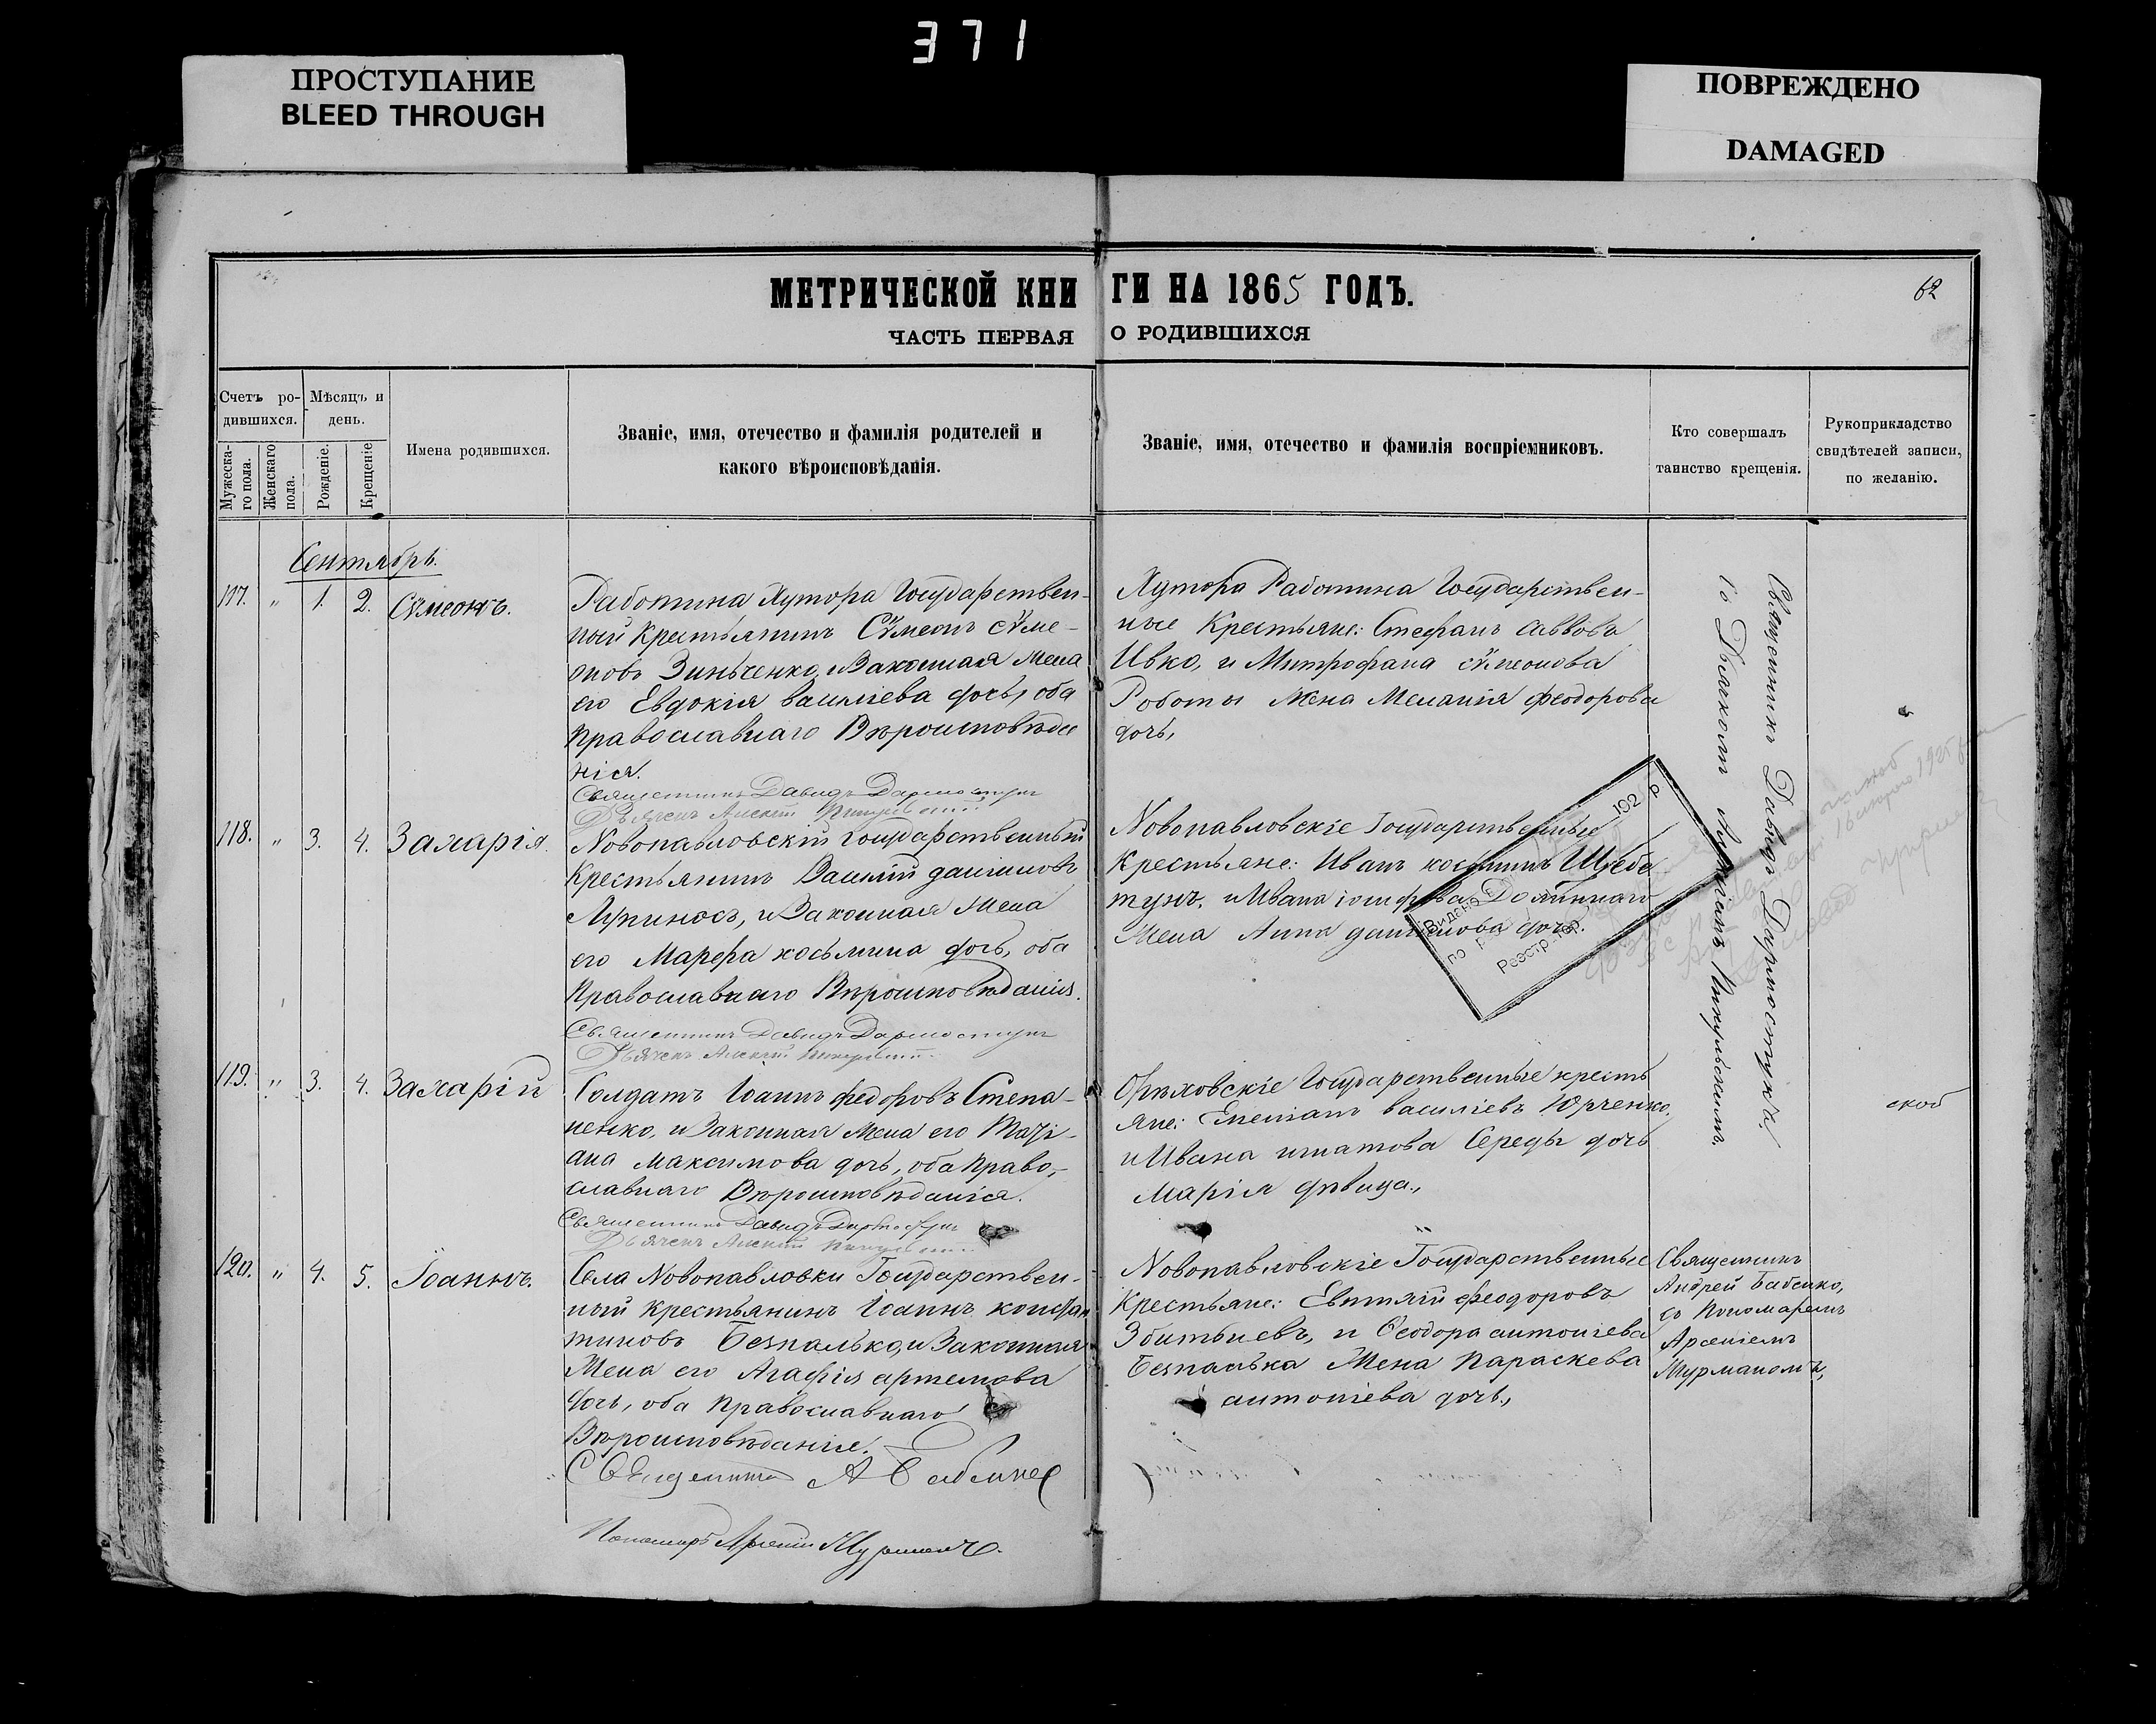 371
ПРОСТУПАНИЕ
BLEED THROUGH
ПОВРЕЖДЕНО
DAMAGED
МЕТРИЧЕСКОЙ КНИГИ НА 1865 ГОДЪ.
62
ЧАСТЬ ПЕРВАЯ О РОДИВШИХСЯ
Счетъ ро-
дившихся.
Мужеска-
го пола.
Женскаго
пола.
Мѣсяцъ и
день.
Рожденіе.
Крещеніе
Имена родившихся.
Званіе, имя, отечество и фамилія родителей и
какого вѣроисповѣданія.
Званіе, имя, отечество и фамилія воспріемниковъ.
Кто совершалъ
таинство крещенія.
Рукоприкладство
свидѣтелей записи,
по желанію.
Сентябрь.
117. " 1. 2. Сѵмеонъ.
Работина Хутора Государствен-
ный Крестьянинъ Сѵмеонъ сѵме-
оновъ Зинченко, и Законная Жена
его Евдокія василіева дочь, оба
Православнаго Вѣроисповѣда
нія.
Священникъ Давидъ Дармостукъ
Дьячекъ Алексій
Хутора Работина Государствен-
ные Крестьяне: Стефанъ саввовъ
Ивко, и Митрофана сѵмеонова
Роботы Жена Меланія феодорова
дочь,
Священникъ Давидъ Дармостукъ
съ Дьячкомъ
118. " 3. 4. Захарія.
Новопавловскій Государственный
Крестьянинъ Василій даніиловъ
Лупиносъ, и Законная Жена
его Марфа косьмина дочь, оба
Православнаго Вѣроисповѣданія.
Священникъ Давидъ Дармостукъ
Дьячекъ Алексій
Новопавловскіе Государственные
Крестьяне: Иванъ косьминъ Щеба
тунъ, и Ивана іосифова
Жена Анна даніилова дочь.
192 р
по
Реєстр.
119. " 3. 4. Захарій
Солдатъ Іоаннъ федоровъ Степа-
ненко, и Законная Жена его Таті-
ана Максимова дочь, оба Право-
славнаго Вѣроисповѣданія.
Священникъ Давидъ Дармостукъ
Дьячекъ Алексій
Орѣховскіе Государственные кресть
яне: Емеліанъ василіевъ Юрченко,
и Ивана игнатова Середы дочь
Марія дѣвица.,
120. " 4. 5. Іоаннъ.
Села Новопавловки Государствен-
ный Крестьянинъ Іоаннъ констан
тиновъ Безпалько, и Законная
Жена его Агафія артемова
дочь, оба Православнаго
Вѣроисповѣданія.
Священникъ А Бабенко
Пономарь Арсеній Мурманъ.
Новопавловскіе Государственные
Крестьяне: Евтихій феодоровъ
Збитневъ, и Ѳеодора антоніева
Безпалька Жена Параскева
антоніева дочь.,
Священникъ
Андрей Бабенко,
съ Пономаремъ
Арсеніемъ
Мурманомъ,